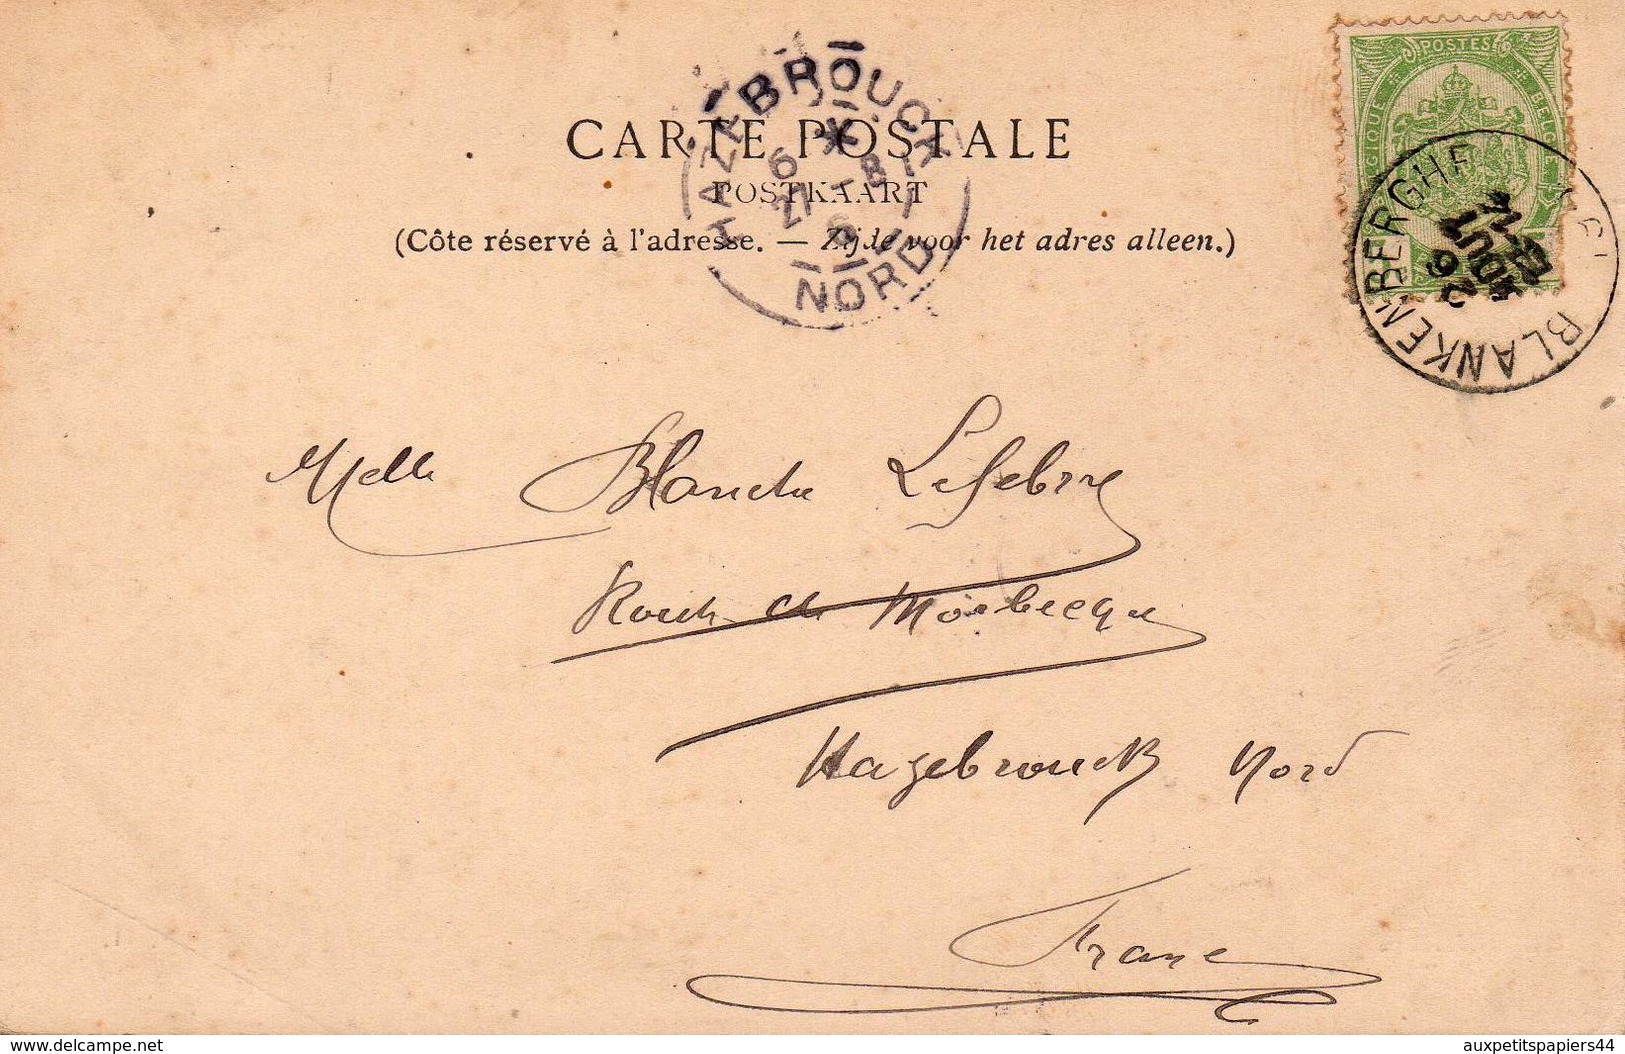 POSTES
BELGIQUE BELGIE
HAZEBROUCK
6
27 - 8
NORD
CARTE POSTALE
POSTKAART
(Côte réservé à l'adresse. — Zijde voor het adres alleen.)
BLANKENBERGHE
AOUT
Melle Blanche Lefebvre
Route de Morbecque
Hazebrouck Nord
France
www.delcampe.net
auxpetitspapiers44